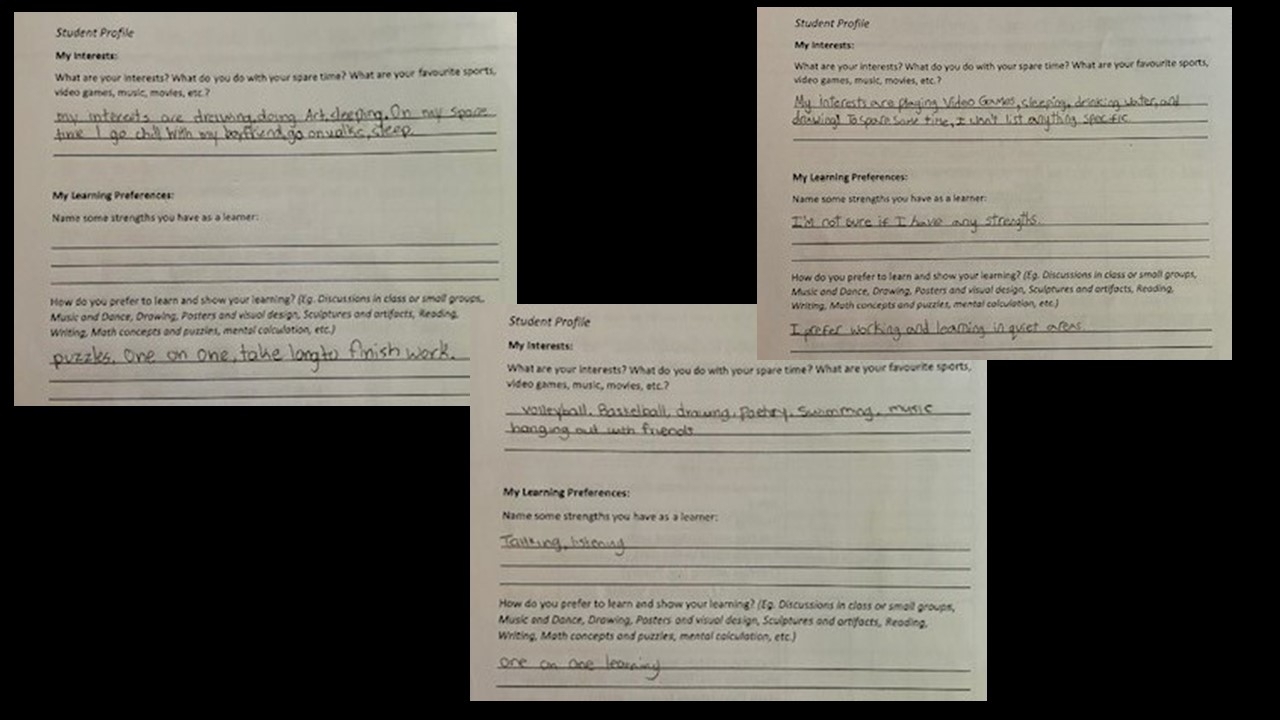 Student Profile
My Interests:
What are your interests? What do you do with your spare time? What are your favourite sports,
video games, music, movies, etc.?
my interests are drawing, doing Art, sleeping. On my spare
time I go chill with my boyfriend, go on walks, sleep
My Learning Preferences:
Name some strengths you have as a learner:
How do you prefer to learn and show your learning? (Eg. Discussions in class or small groups,
Music and Dance, Drawing, Posters and visual design, Sculptures and artifacts, Reading,
Writing, Math concepts and puzzles, mental calculation, etc.)
puzzles. One on One, take long to finish work.
Student Profile
My Interests:
What are your interests? What do you do with your spare time? What are your favourite sports,
video games, music, movies, etc.?
My Interests are playing Video Games, sleeping, drinking water, and
drawing! To spare some time, I won't list anything specific
My Learning Preferences:
Name some strengths you have as a learner:
I'm not sure if I have any strengths.
How do you prefer to learn and show your learning? (Eg. Discussions in class or small groups,
Music and Dance, Drawing, Posters and visual design, Sculptures and artifacts, Reading,
Writing, Math concepts and puzzles, mental calculation, etc.)
I prefer working and learning in quiet areas.
Student Profile
My Interests:
What are your interests? What do you do with your spare time? What are your favourite sports,
video games, music, movies, etc.?
volleyball, Basketball, drawing, Poetry, Swimming, music
hanging out with friends
My Learning Preferences:
Name some strengths you have as a learner:
Talking, listening
How do you prefer to learn and show your learning? (Eg. Discussions in class or small groups,
Music and Dance, Drawing, Posters and visual design, Sculptures and artifacts, Reading,
Writing, Math concepts and puzzles, mental calculation, etc.)
one on one learning